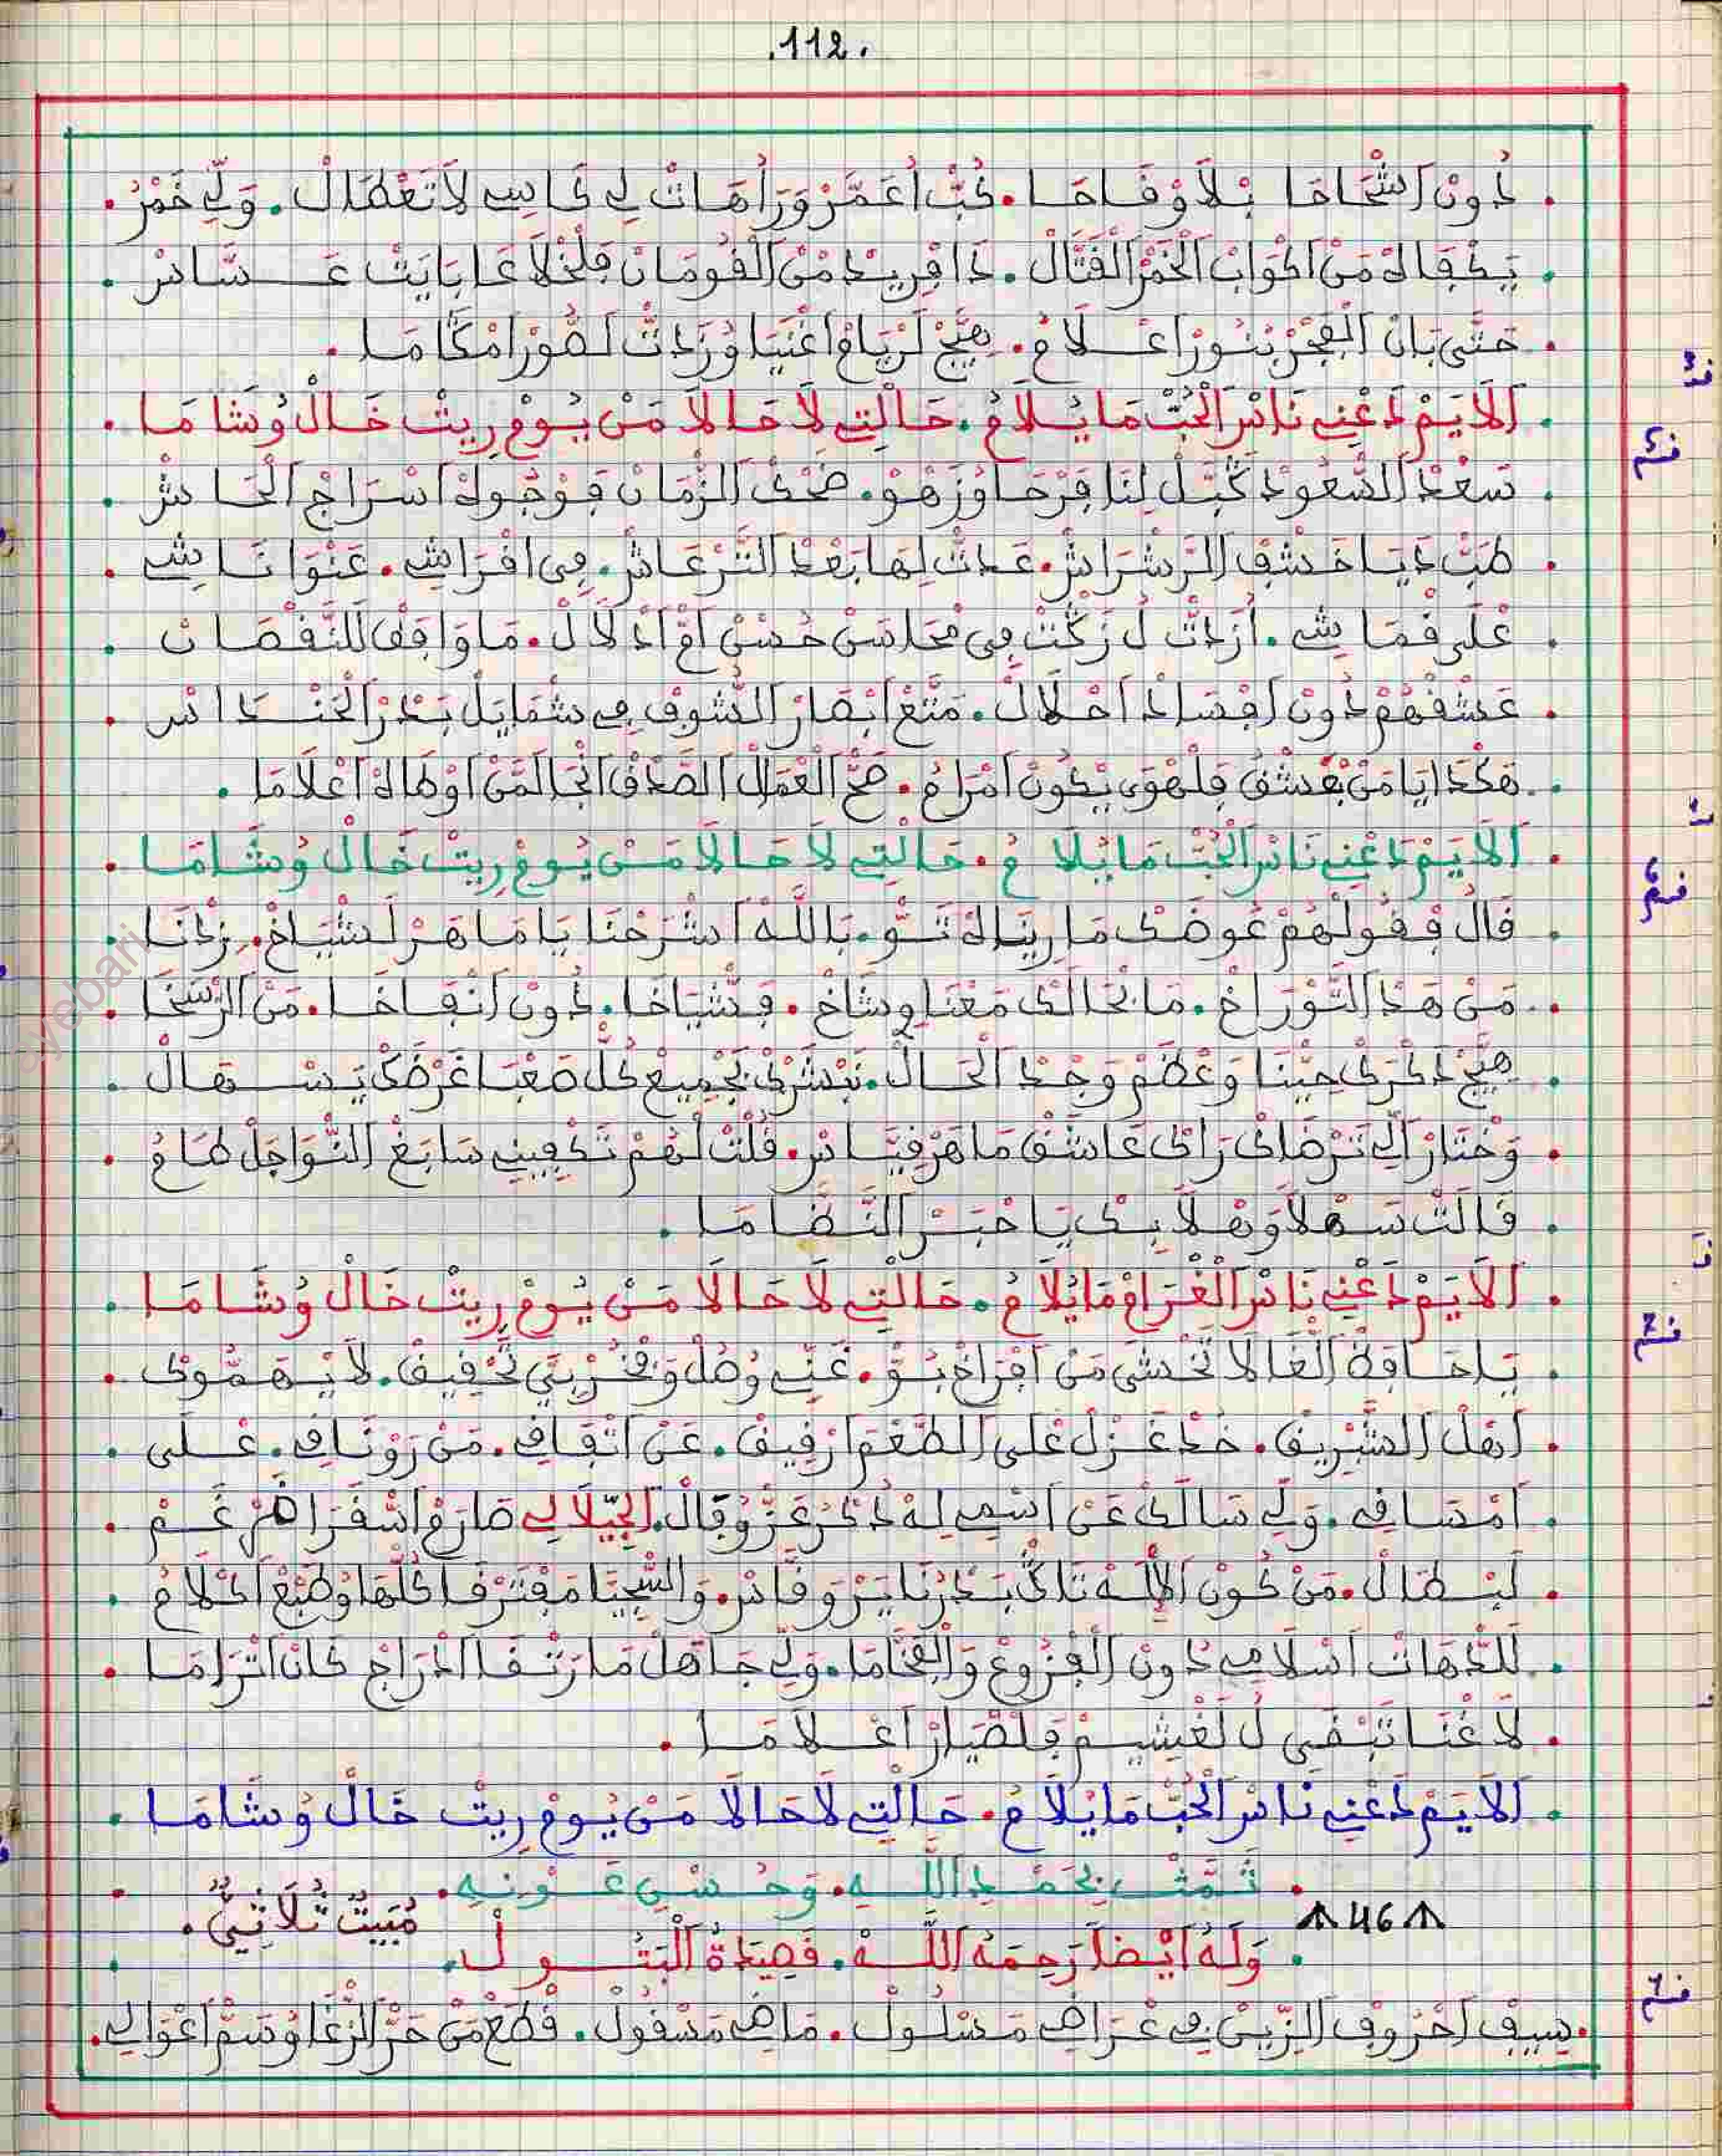 .112.
. دُونْ اشْحَاحَا بْلَا وْقَاحَا. كُبّْ أُعَمَّرْ وَرَاهَاتْ لِي كَاسِي لَا تَعْطَالْ. وَلِّي خْمَرْ.
. يَكْفَاهْ مَنْ اكْوَابْ الْخَمْرْ الْقَتَّالْ. دَا فْرِيدْ مْنْ الْقُومَانْ فَلْخْلَا عَابَايَتْ عَسَّاسْ.
. حَتَّى بَانْ الْفْجَرْ بَنُورْ اعْلَامُ. هِيَّجْ لَرْيَامْ اغْنَيَا وُزَدْتْ لَصُّورْ امْكَامَا.
. الَايَمْ دَعْنِي نَاسْ الْحُبّْ مَا يُلَامُ. حَالْتِي لَا حَالَا مَنْ يُومْ رِيتْ خَالْ وُشَامَا.
. سَعْدْ السّْعُودْ كَبَّلْ لِنَا فَرْحَا وُزَهْوْ. ضْحَكْ الزّْمَانْ فَوْجُوهْ اسْرَاجْ الْحَاشْ.
. طَبْتْ دَيَا خَشْفْ الرَّشْرَاشْ. عَدْتْ لِهَا بَعْدْ التَّرْعَاشْ. فِي افْرَاشِي. عَنْوَانَاشِي.
. عْلَى قْمَاشِي. أُزَدْتْ لُ زَكّْتْ فِي مْحَاسَنْ حُسْنْ امّْ ادْلَالْ. مَا وَافَقْ النَّقْصَانْ.
. عَشْقْهُمْ دُونْ افْسَادْ احْلَالْ. مَتَّعْ ابْصَارْ الشُّوفْ فِي شْمَايَلْ بَدْرْ الْحَنْدَاسْ.
. هَكْدَا يَا مَنْ يَعْشَقْ فَلْهْوَى يْكُونْ امْرَامُ. صَحّْ الْعْمَالْ الصَّدْقْ انْجَا لَمَّنْ اوْطَاهْ اعْلَامَا.
. الَايَمْ دَعْنِي نَاسْ الْحُبّْ مَا يُلَامُ. حَالْتِي لَا حَالَا مَنْ يُومْ رِيتْ خَالْ وُشَامَا.
. قَالُ فْقُولْهُمْ عُوضَكْ مَا رِينَاهْ تَوّْ. بَاللَّهْ اشْرَحْنَا يَا مَاهَرْ لَشْيَاخْ. زِدْنَا.
. مَنْ هَدْ التّْوْرَاخْ. مَا بْحَالَكْ مَعْنَاوِي شَاخْ. فَشّْيَاخَا. دُونْ انْفَاخَا. مَنْ الرّْسَخَا.
. هِيَّجْ دَكْرَكْ حِيِّنَا وَعْضَمْ وَجْدْ الْحَالْ. نَبْشَرْكْ بَجْمِيعْ كُلّْ صَعْبَا غَرْضَكْ يَسْهَالْ.
. وَخْتَارْ الِّي تَرْضَاكْ رَاكْ عَاشَقْ مَاهَرْ قِيَّاسْ. قُلْتْ لْهُمْ تَكْفِينِي سَابَغْ النّْوَاجَلْ طَامُ.
. قَالَتْ سَهْلَا وَهْلَا بِكْ يَا حْبَرْ النَّضَّامَا.
. الَايَمْ دَعْنِي نَاسْ الْغْرَامْ مَا يُلَامُ. حَالْتِي لَا حَالَا مَنْ يُومْ رِيتْ خَالْ وُشَامَا.
. يَا حَافَضْ الْغَا لَا تَخْشَى مَنْ افْرَاخْ بُوّْ. غَنِّي وُصُلْ وَفْخُرْ بِيَّ تَحْفِيقْ. لَا يْهَمُّوكْ.
. اهْلْ التَّشْرِيقْ. خُدْ غَزْلْ عْلَى الطَّعْمْ ارْقِيقْ. عَنْ اتْقَافِي. مَنْ رَوْنَافِي. عْلَى.
. امْسَافِي. وَلِّي سَالَكْ عَنْ اسْمِي لِهْ دْكَرْ عَزُّ وُقَالْ. الْجِيلَالِي صَارَمْ اشْفَرَاضْمْ غَمْ.
. لَبْطَالْ. مَنْ كُونْ الْالَهْ تَاكّْ بَدْرْنَا يَزْوَقَّاسْ. وَالسّْجِيَّا مَفْتَرْقَا كُلّْهَا وُطَبْعْ اكْلَامُ.
. للدّْهَاتْ اسْلَامِي دُونْ الْفْرُوعْ وَالْفْخَامَا. وَلِّي جَاهَلْ مَا رْتْقَا ادْرَاجْ كَانْ اتْرَامَا.
. لَا غْنَا تَبْقَى لُ لَغْشِيمْ فَلْصْيَارْ اعْلَامَا.
. الَايَمْ دَعْنِي نَاسْ الْحُبّْ مَا يُلَامُ. حَالْتِي لَا حَالَا مَنْ يُومْ رِيتْ خَالْ وُشَامَا.
. تَمَّتْ بِحَمْدِ اللَّهِ. وَحُسْنِ عَوْنِهِ.
46
مُبَيَّتٌ ثُلَاثِيٌّ.
. وَلَهُ أَيْضاً رَحِمَهُ اللَّهْ. قَصِيدَةُ الْبَتُولْ.
. سِيفْ احْرُوفْ الزِّينْ فِي غْرَاضِي مَسْلُولْ. مَاضِي مَسْقُولْ. قْطَعْ مَنْ حَرّْ الزّْغَا وُسَمّْ اعْوَالِي.